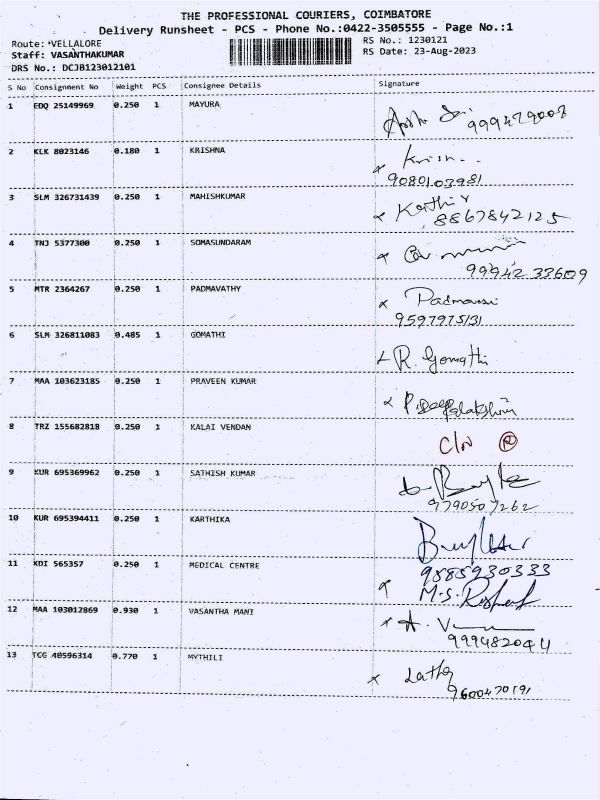 THE PROFESSIONAL COURIERS, COIMBATORE
Delivery Runsheet - PCS - Phone No.:0422-3505555 - Page No.:1
Route: VELLALORE RS No.: 1230121
Staff: VASANTHAKUMAR RS Date: 23-Aug-2023
DRS No.: DCJB123012101
S No Consignment No Weight PCS Consignee Details Signature
1 EDQ 25149969 0.250 1 MAYURA
2 KLK 8023146 0.180 1 KRISHNA Krish
9080103981
3 SLM 326731439 0.250 1 MAHISHKUMAR Karthi
8867842125
4 TNJ 5377300 0.250 1 SOMASUNDARAM
99942 33609
5 MTR 2364267 0.250 1 PADMAVATHY Padmavasi
9597975131
6 SLM 326811083 0.485 1 GOMATHI R. Gomathi
7 MAA 103623185 0.250 1 PRAVEEN KUMAR
8 TRZ 155682818 0.250 1 KALAI VENDAN
9 KUR 695369962 0.250 1 SATHISH KUMAR
9790507262
10 KUR 695394411 0.250 1 KARTHIKA
11 KDI 565357 0.250 1 MEDICAL CENTRE 9585930333
M.S.
12 MAA 103012869 0.930 1 VASANTHA MANI A. V
9994820411
13 TCG 40596314 0.770 1 MYTHILI Latha
9600470191